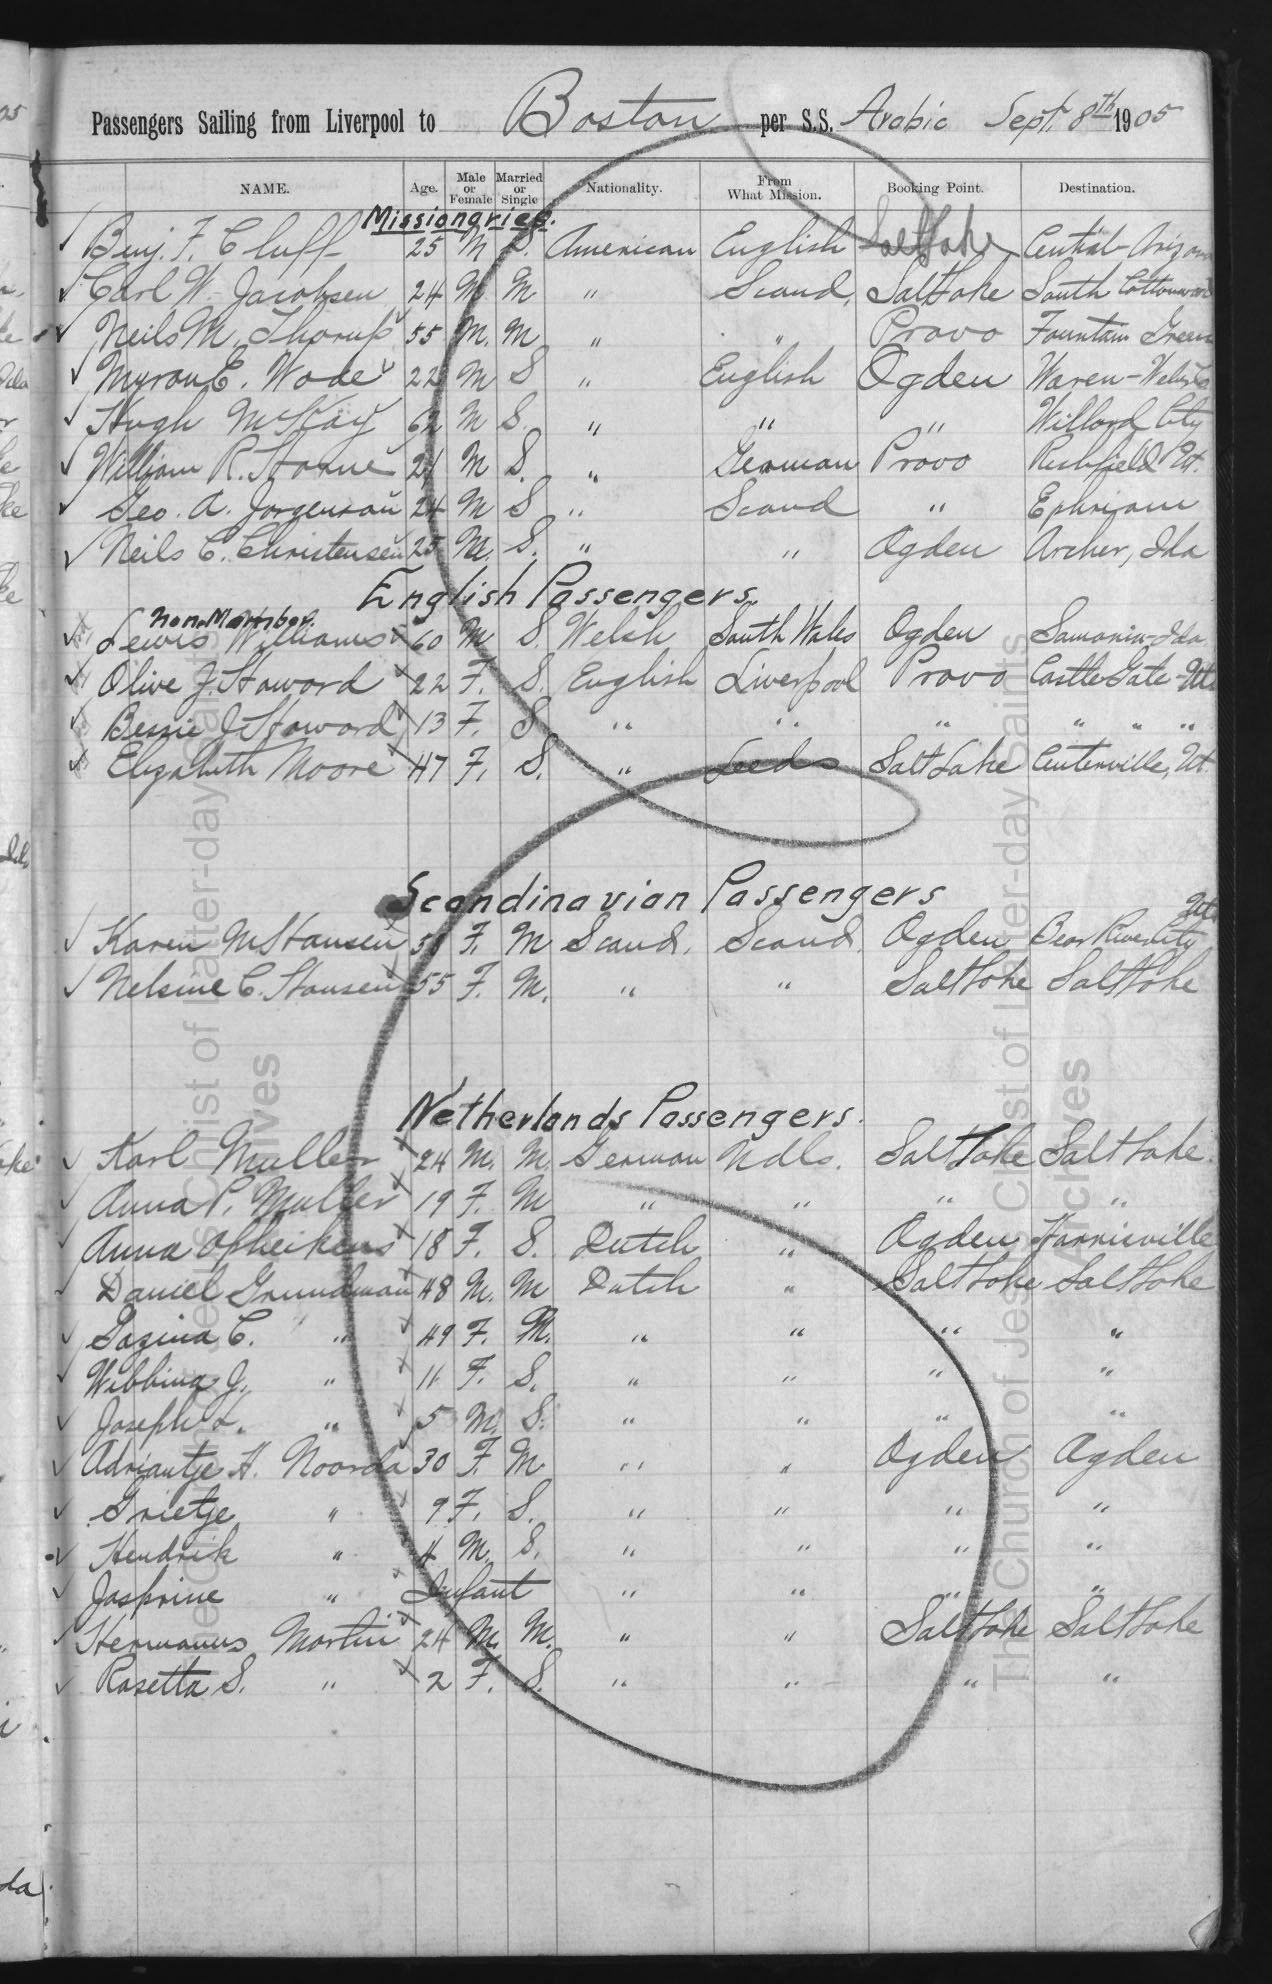 Passengers Sailing from Liverpool to Boston per S.S. Arabic Sept. 8th 1905
NAME. Age. Male or Female Married or Single Nationality. From What Mission. Booking Point. Destination.
Missionaries.
Benj. F. Cluff 25 M S. American English Salt Lake Central - Arizona
Carl W. Jacobsen 24 M M " Scand. Salt Lake South Cottonwood
Neils M. Thorup 55 M. M " " Provo Fountain Green
Myron E. Wade 22 M S " English Ogden Waren -
Hugh McKay 62 M S. " " " Willard City
William R. Horne 21 M S. " German Provo Richfield Ut.
Geo. A. Jorgensen 24 M S " Scand " Ephriam
Neils C. Christensen 25 M. S. " " Ogden Archer, Ida
English Passengers.
Non Member.
Lewis Williams 60 M S. Welsh South Wales Ogden Samaria - Ida
Olive J. Howard 22 F. S. English Liverpool Provo Castle Gate - Ut.
Bessie J. Howard 13 F. S " " " " " "
Elizabeth Moore 47 F. S. " Leeds Salt Lake Centerville, Ut.
Scandinavian Passengers
Karen M. Hansen F. M Scand. Scand. Ogden Bear River City Ut
Nelsine C. Hansen 55 F. M. " " Salt Lake Salt Lake
Netherlands Passengers.
Karl Muller 24 M. M. German Ndls. Salt Lake Salt Lake.
Anna P. Muller 19 F. M " " " "
Anna Opheikens 18 F. S. Dutch " Ogden Harrisville
Daniel Grundman 48 M. M Dutch " Salt Lake Salt Lake
Gazina C. " 49 F. M. " " " "
Wibbina J. " 11 F. S. " " " "
Joseph L. " 5 M. S. " " " "
Adriantje H. Noorda 30 F. M " " Ogden Ogden
Grietje " 9 F. S. " " " "
Hendrik " 4 M. S. " " " "
Jasprine " Infant " " " "
Hermanus Martin 24 M. M. " " Salt Lake Salt Lake
Rosetta S. " 2 F. S. " " " "
The Church of Jesus Christ of Latter-day Saints
Archives
The Church of Jesus Christ of Latter-day Saints
Archives